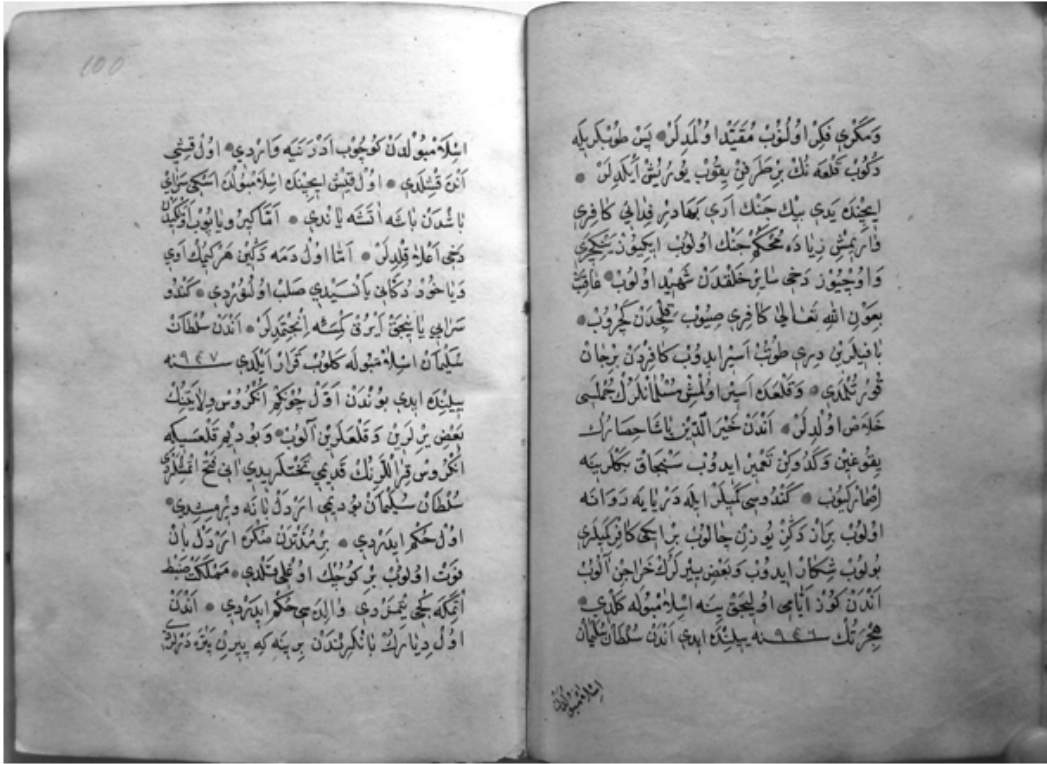 وَمَكْرِي فِكْرِ اُولُنُوبْ مُقَيَّدْ اُولْمَدِلَرْ پَسْ طُوپْلَرِيلَه
دُكُوبْ قَلْعَه نُكْ بِرْ طَرَفِنْ يِقُوبْ يُورُيِشْ اَيْلَدِلَرْ
اِيچِنْدَ يَدِي بِيكْ جَنْكْ اَرِي بَهَادِرْ فِدَائِي كَافِرِي
وَارِيمِشْ زِيَادَه مُحْكَمْ جَنْكْ اُولُوبْ اِيكِيوُزْ يَكِيچَرِي
وَاوُچيُوزْ دَخِي سَايِرْ خَلْقْدَنْ شَهِيدْ اُولُوبْ عَاقِبَتْ
بِعَوْنِ اللهِ تَعَالَى كَافِرِي صِيُوبْ قِلِجْدَنْ كَچُرُوبْ
بَاقِيلَرِينْ دِرِي طُوتُبْ اَسِيرْ ايدُوبْ كَافِرْدَنْ بِرْجَانْ
قُورْتُلْمَدِي وَقَلْعَدَه اَسِيرْ اُولْمِشْ مُسُلْمَانْلَرُكْ جُمْلَسِي
خَلَاصْ اُولْدِلَرْ اَنْدَنْ خَيْرَ الدِّينْ پَاشَا حِصَارُكْ
يِقُوغِينْ وَكَدُوكِنْ تَعْمِيرْ ايدُوبْ سَنْجَاقْ بَكْلَرِينَه
اِصْمَرْلَيُوبْ كَنْدُوسِي كَمِيلَرْ ايلَه دَرْيَايَه رَوَانَه
اولُوبْ بِرْزَمَانْ دَكِزْ يُوزِنْ چَالُوبْ بِرْ اِيكِي كَافِرْ كَمِيلَرِي
بُولُوبْ شِكَارْ ايدُوبْ وَبَعْضِ يِيرْلَرُكْ خَرَاجِنْ آلُوبْ
اَنْدَنْ كُوزْ اَيَّامِي اُولِيجَقْ يِينَه اِسْلَامْبُولَه كَلْدِي
هِجْرَتُكْ سنه ٩٤٦ يِيلِنْدَه ايدِي اَنْدَنْ سُلْطَانْ سُلَيْمَانْ
اِسْلَامْبُولْدَنْ
100
اِسْلَامْبُولْدَنْ كُوچُوبْ اَدْرَنَيَه وَارْدِي اُولْ قِيشِي
اَنْدَه قِشْلَدِي اُولْ قِيشْ اِيچِنْدَ اِسْلَامْبُولْدَه اَسْكِي سَرَايْ
بَاشْدَنْ بَاشَه اٰتَشَه يَانْدِي اَمَّا كِيرُو يَاپُوبْ اَوَّلْكِيدَنْ
دَخِي اَعْلَا قِلْدِلَرْ اَمَّا اُولْ دَمَه دَكِينْ هَرْ كِمُكْ اَوِي
وَيَاخُودْ دُكَانِي يَانْسَيْدِي صَلْبْ اُولُنُورْدِي كَنْدُو
سَرَايِي يَانِيجَقْ اَيْرُقْ كِمْسَه اِنْجِتْمَدِلَرْ اَنْدَنْ سُلْطَانْ
سُلَيْمَانْ اِسْلَامْبُولَه كَلُوبْ قَرَارْ اَيْلَدِي سنه ٩٤٧
يِيلِنْدَه ايدِي بُونْدَنْ اَوَّلْ چُونْكِمْ اُنْكُرُوسْ وِلَايَتِنُكْ
بَعْضِ يِرْلَرِينْ وَقَلْعَلَرِينْ آلُوبْ وَبُودِيمْ قَلْعَسِيكِه
اُنْكُرُوسْ قِرَالْلَرِنُكْ قَدِيمِي تَخْتْلَرِيدِي اَنِي فَتْحْ اتْمِشْلَرْدِي
سُلْطَانْ سُلَيْمَانْ بُودِيمِي اَرْدَلْ بَانَه وِيرْمِشِدِي
اُولْ حُكْمْ ايدَرْدِي بِرْ مُدَّتْدَنْ صُكْرَه اَرْدَلْ بَانْ
فَوْتْ اولُوبْ بِرْ كُوچُوكْ اوُغْلِي قَلْدِي مَمْلَكَتْ ضَبْطْ
اتْمَكَه كُجِي يَتْمَزْدِي وَالِدَسِي حُكْمْ ايدَرْدِي اَنْدَنْ
اُولْ دِيَارُكْ بَانْلَرِنْدَنْ بِرِينَه كِه